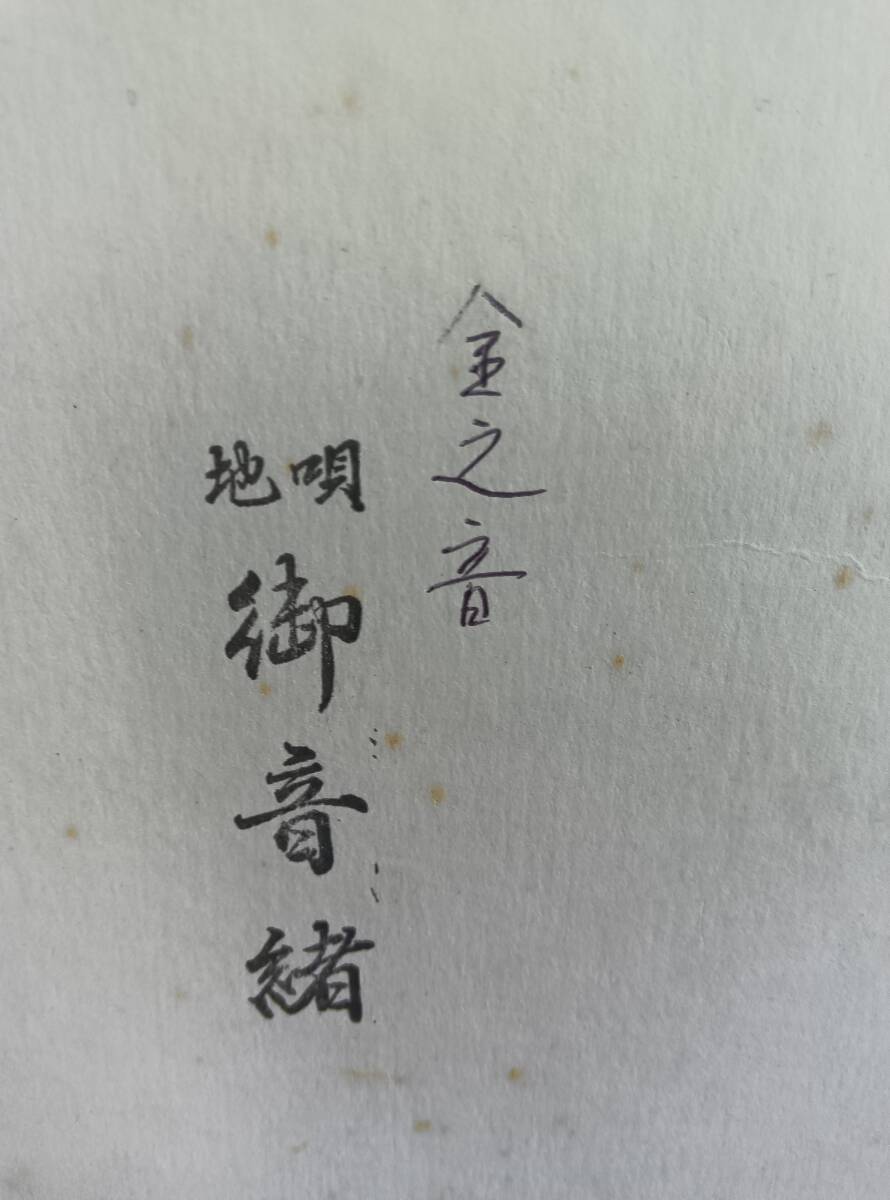 金之音
地唄
御音緒